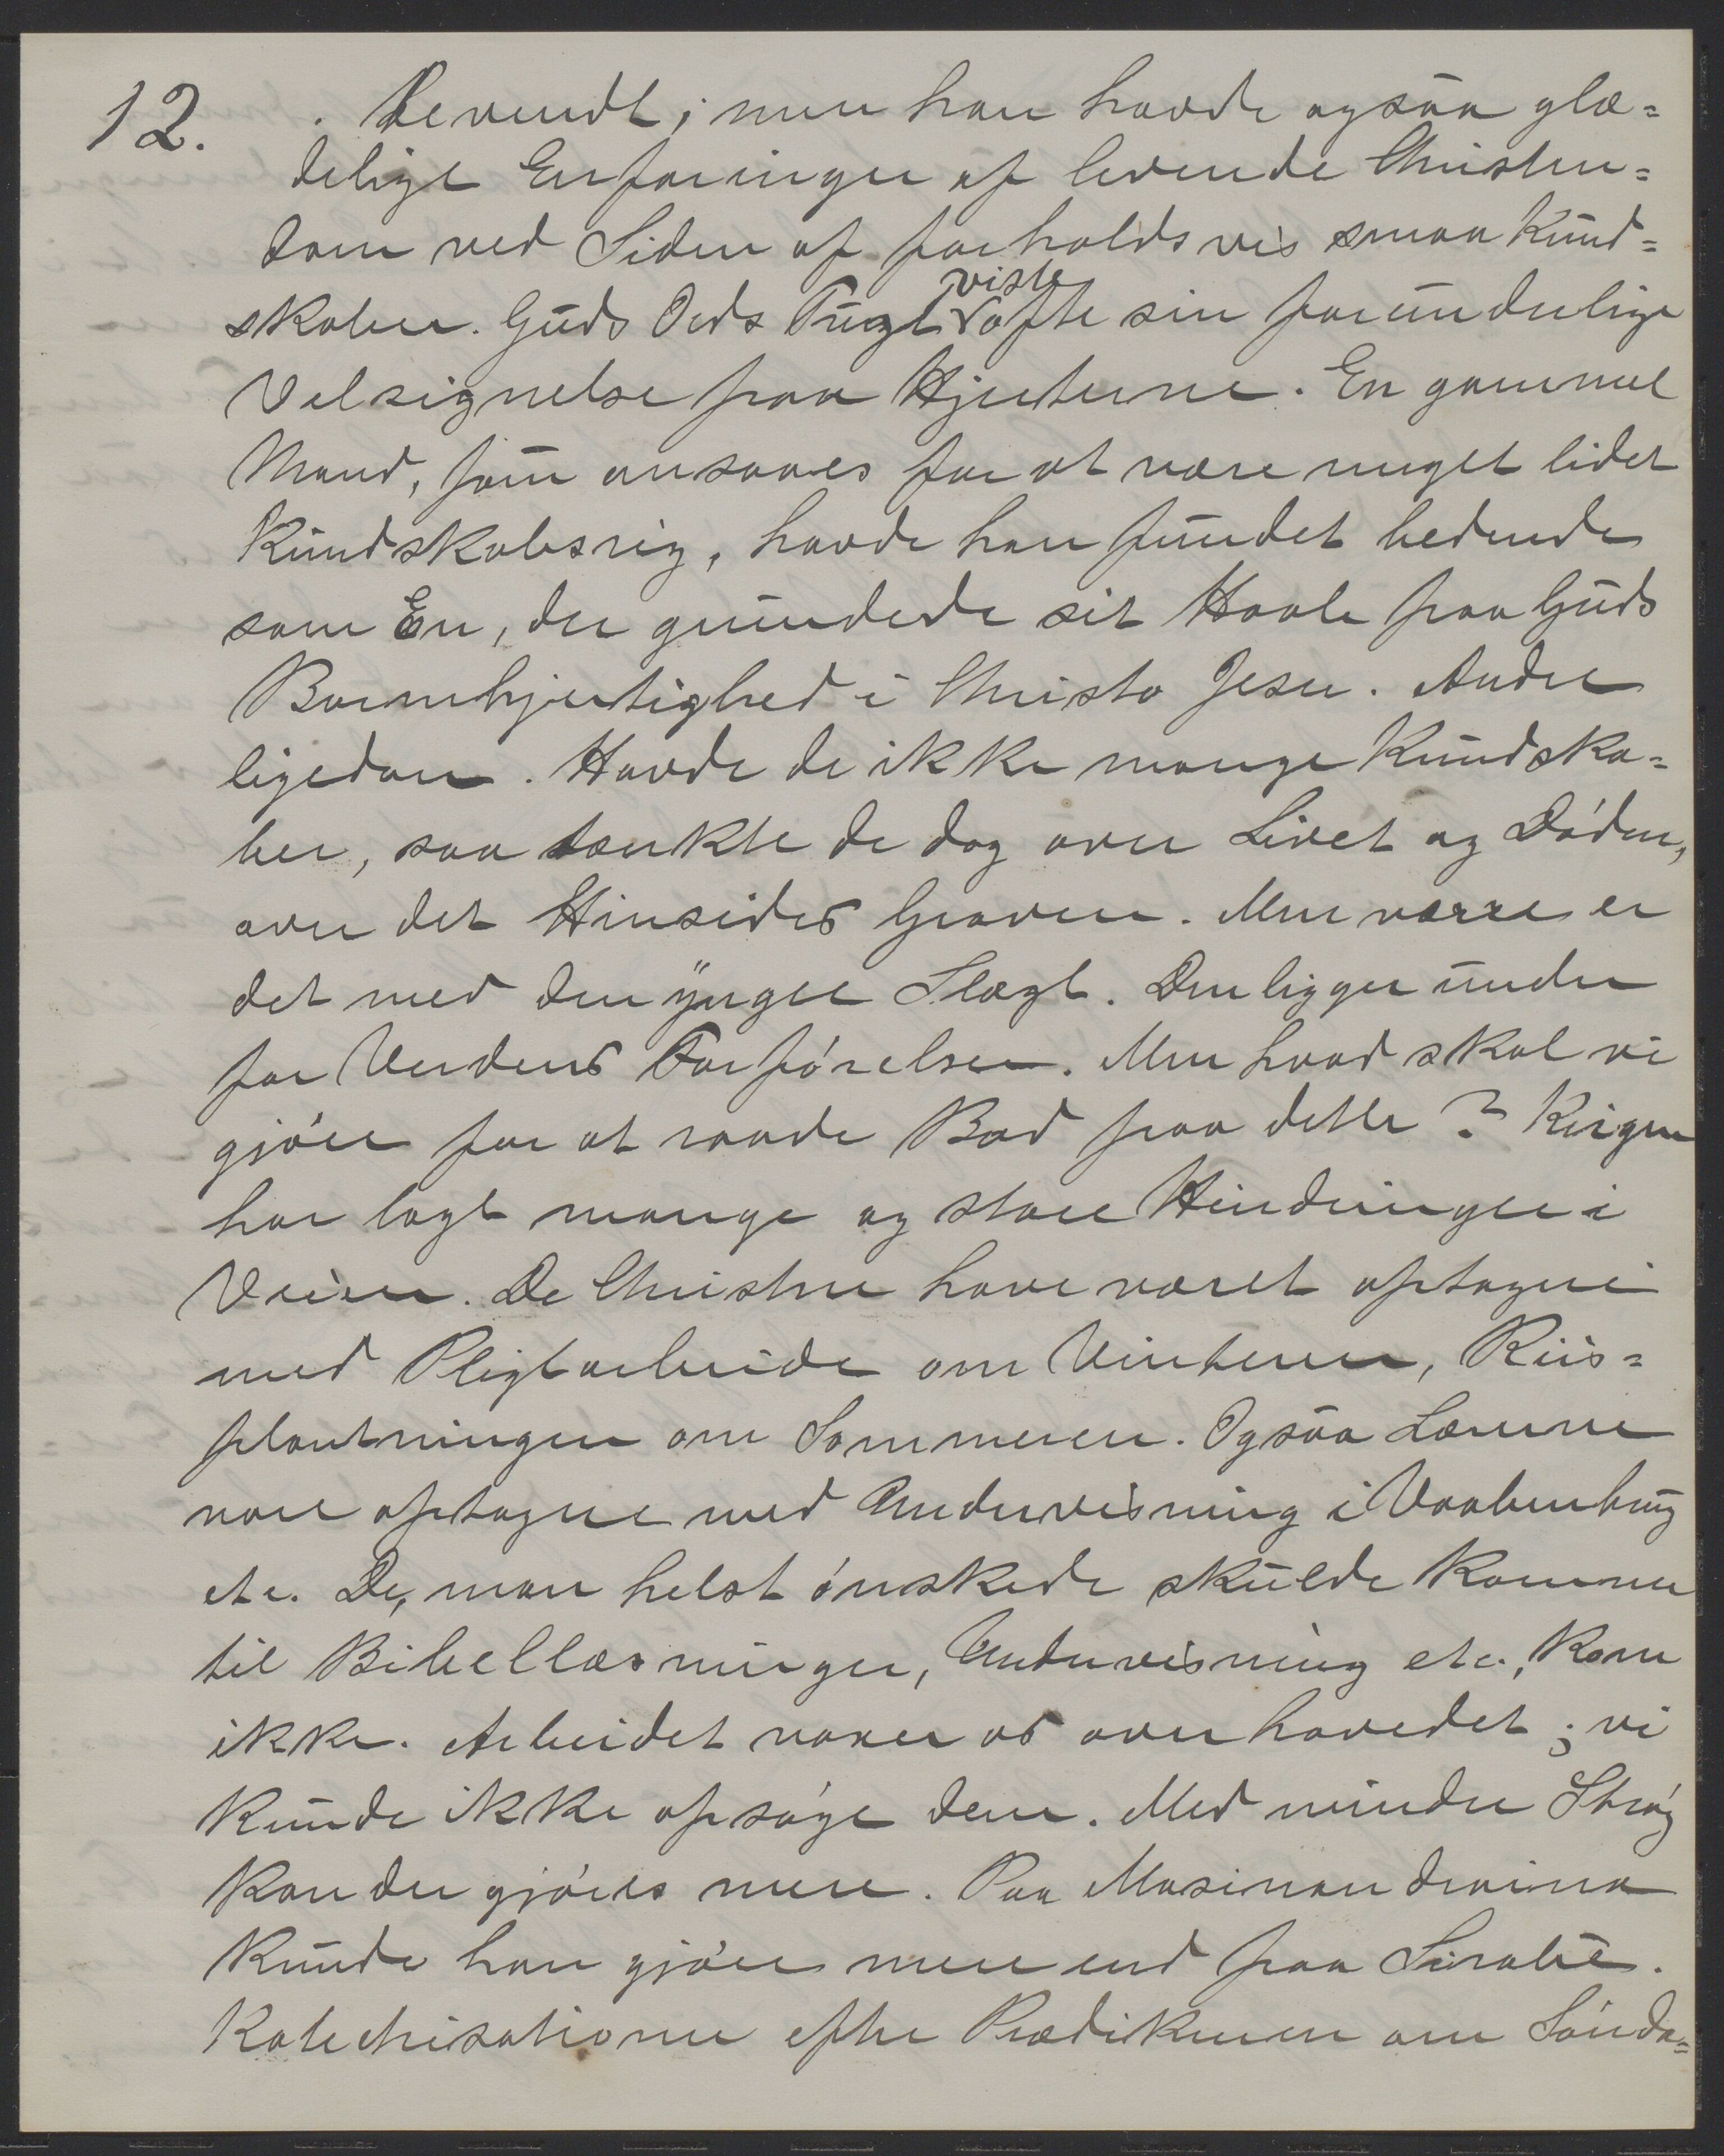 12. bevendt; men han havde ogsaa glæ=
delige Erfaringer af levende Christen=
dom ved Siden af forholdsvis smaa Kund=
skaber. Guds Ords Tugt viste ofte sin forunderlige
Velsignelse paa Hjerterne. En gammel
Mand, som ansaaes for at være meget lidet
Kundskabsrig, havde han fundet bedende
som En, der grundede sit Haab paa Guds
Barmhjertighed i Christo Jesu. Andre
ligedan. Havde de ikke mange Kundska=
ber, saa tænkte de dog over Livet og Døden,
over det Hinsides Graven. Men værre er
det med den yngre Slægt. Den ligger under
for Verdens Forførelser. Men hvad skal vi
gjøre for at raade Bod paa dette? Krigen
har lagt mange og store Hindringer i
Veien. De Christne have været optagne
med Pligtarbeide om Vinteren, Riis=
plantningen om Sommeren. Ogsaa Lærerne
vare optagne med Undervisning i Vaabenbrug
etc. De, man helst ønskede skulde komme
til Bibellæsninger, Undervisning etc., kom
ikke. Arbeidet voxer os over hovedet; vi
kunde ikke opsøge dem. Med mindre Strøg
kan der gjøres mere. Paa Masinandraina
kunde han gjøre mere end paa Sirabe.
Katechisationen efter Prædikenen om Sønda=